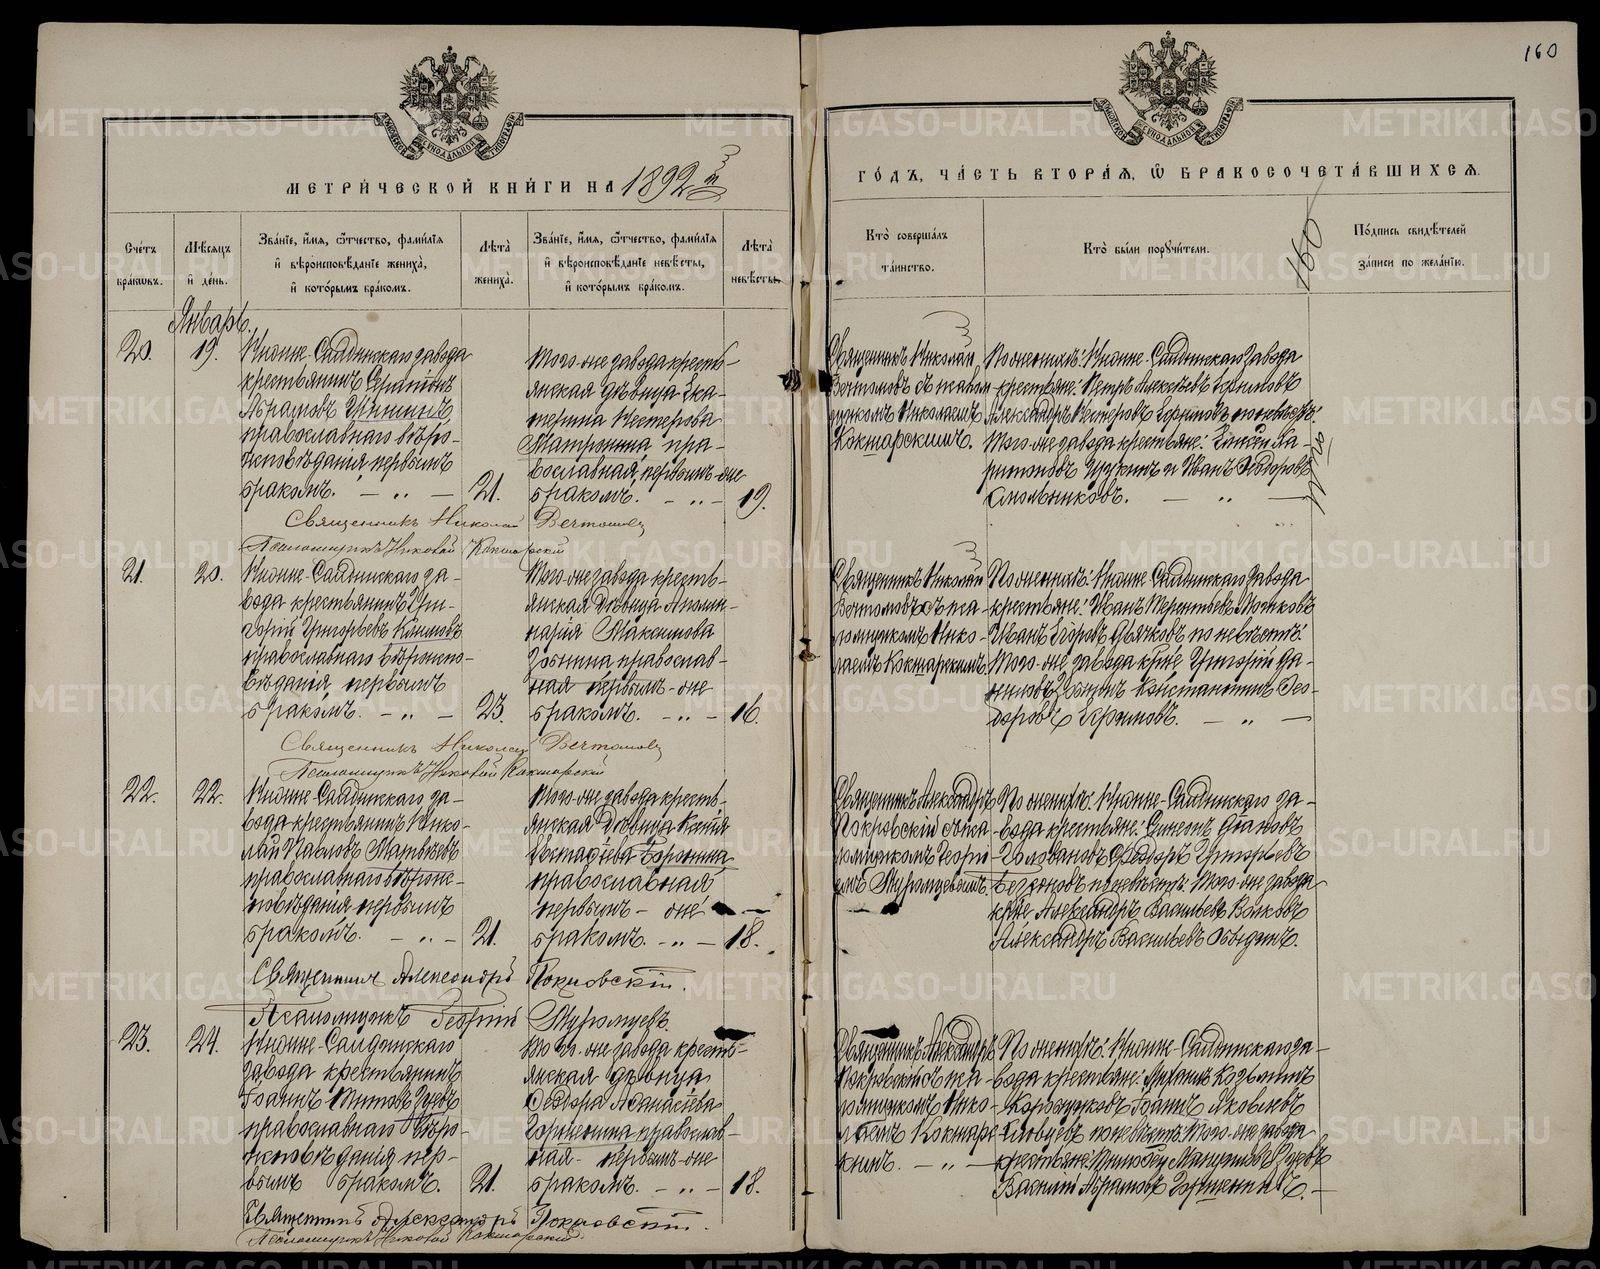 160
МЕТРИ́ЧЕСКОЙ КНИ́ГИ НА 1892й
ГО́ДЪ, ЧА́СТЬ ВТОРА́Я, Ѿ БРАКОСОЧЕТА́ВШИХСЯ.
Сче́тъ бра́кωвъ.
Мѣ́сяцъ и҆ де́нь.
Зва́нїе, и҆́мя, ѻ҆́тчество, фами́лїя
и҆ вѣроисповѣ́данїе жениха̀,
и҆ кото́рымъ бра́комъ.
Лѣта̀ жениха̀.
Зва́нїе, и҆́мя, ѻ҆́тчество, фами́лїя
и҆ вѣроисповѣ́данїе невѣ́сты,
и҆ кото́рымъ бра́комъ.
Лѣта̀ невѣ́сты.
Кто̀ соверша́лъ
та́инство.
Кто̀ бы́ли порꙋчи́тели.
160
По́дпись свидѣ́телей
за́писи по жела́нїю.
Январь.
20.
19.
Нижне-Салдинскаго завода
крестьянинъ
Абрамовъ
православнаго вѣро-
исповѣданія, первымъ
бракомъ. — „ —
21.
Того-же завода кресть-
янская дѣвица Ека-
терина Нестерова
пра-
вославная, первымъ-же
бракомъ. — „ —
19.
Священникъ Николай
Вечтомовъ съ псалом-
щикомъ Николаемъ
Кокшарскимъ.
По женихѣ: Нижне-Салдинскаго завода
крестьяне: Петръ Алексѣевъ
Александръ Нестеровъ по невѣстѣ:
Того-же завода крестьяне: Ха-
ритоновъ и Иванъ Ѳеодоровъ
— „ —
Священникъ Николай Вечтомовъ
Псаломщикъ Николай Кокшарскій
21.
20.
Нижне-Салдинскаго за-
вода крестьянинъ Гри-
горій Григорьевъ Климовъ
православнаго вѣроиспо-
вѣданія, первымъ
бракомъ. — „ —
23.
Того-же завода кресть-
янская дѣвица Аполли-
нарія Максимова
Зобнина православ-
ная первымъ-же
бракомъ. — „ —
16.
Священникъ Николай
Вечтомовъ съ пса-
ломщикомъ Нико-
лаемъ Кокшарскимъ.
По женихѣ: Нижне-Салдинскаго завода
крестьяне: Иванъ Терентьевъ
Иванъ Егоровъ Дьячковъ по невѣстѣ:
Того-же завода кр-не Григорій Да-
ниловъ Константинъ Ѳео-
доровъ — „ —
Священникъ Николай Вечтомовъ
Псаломщикъ Николай Кокшарскій
22.
22.
Нижне-Салдинскаго за-
вода крестьянинъ Нико-
лай Павловъ Матвѣевъ
православнаго вѣроис-
повѣданія первымъ
бракомъ. — „ —
21.
Того-же завода кресть-
янская дѣвица Ксенія
православная
первымъ — же —
бракомъ. — „ —
18.
Священникъ Александръ
Покровскій съ пса-
ломщикомъ Георгі-
емъ Муромцевымъ.
По женихѣ: Нижне-Салдинскаго за-
вода крестьяне: Симеонъ
Головановъ Ѳеодоръ Григорьевъ
по невѣстѣ: Того-же завода
кр-не Александръ Васильевъ Волковъ
Александръ Васильевъ
Священникъ Александръ Покровскій.
Псаломщикъ Георгій Муромцевъ.
23.
24.
Нижне-Салдинскаго
завода крестьянинъ
Іоаннъ Титовъ
православнаго вѣро-
исповѣданія пер-
вымъ бракомъ.
21.
Того-же завода кресть-
янская дѣвица
Ѳеодора Аѳанасіева
православ-
ная первымъ-же
бракомъ. — „ —
18.
Священникъ Александръ
Покровскій съ пса-
ломщикомъ Нико-
лаемъ Кокшарс-
кимъ. — „ —
По женихѣ: Нижне-Салдинскаго за-
вода крестьяне: Михаилъ Козьминъ
Іоаннъ Яковлевъ
по невѣстѣ: Того-же завода
крестьяне:
Василій Абрамовъ —
Священникъ Александръ Покровскій.
Псаломщикъ Николай Кокшарскій.
METRIKI.GASO-URAL.RU